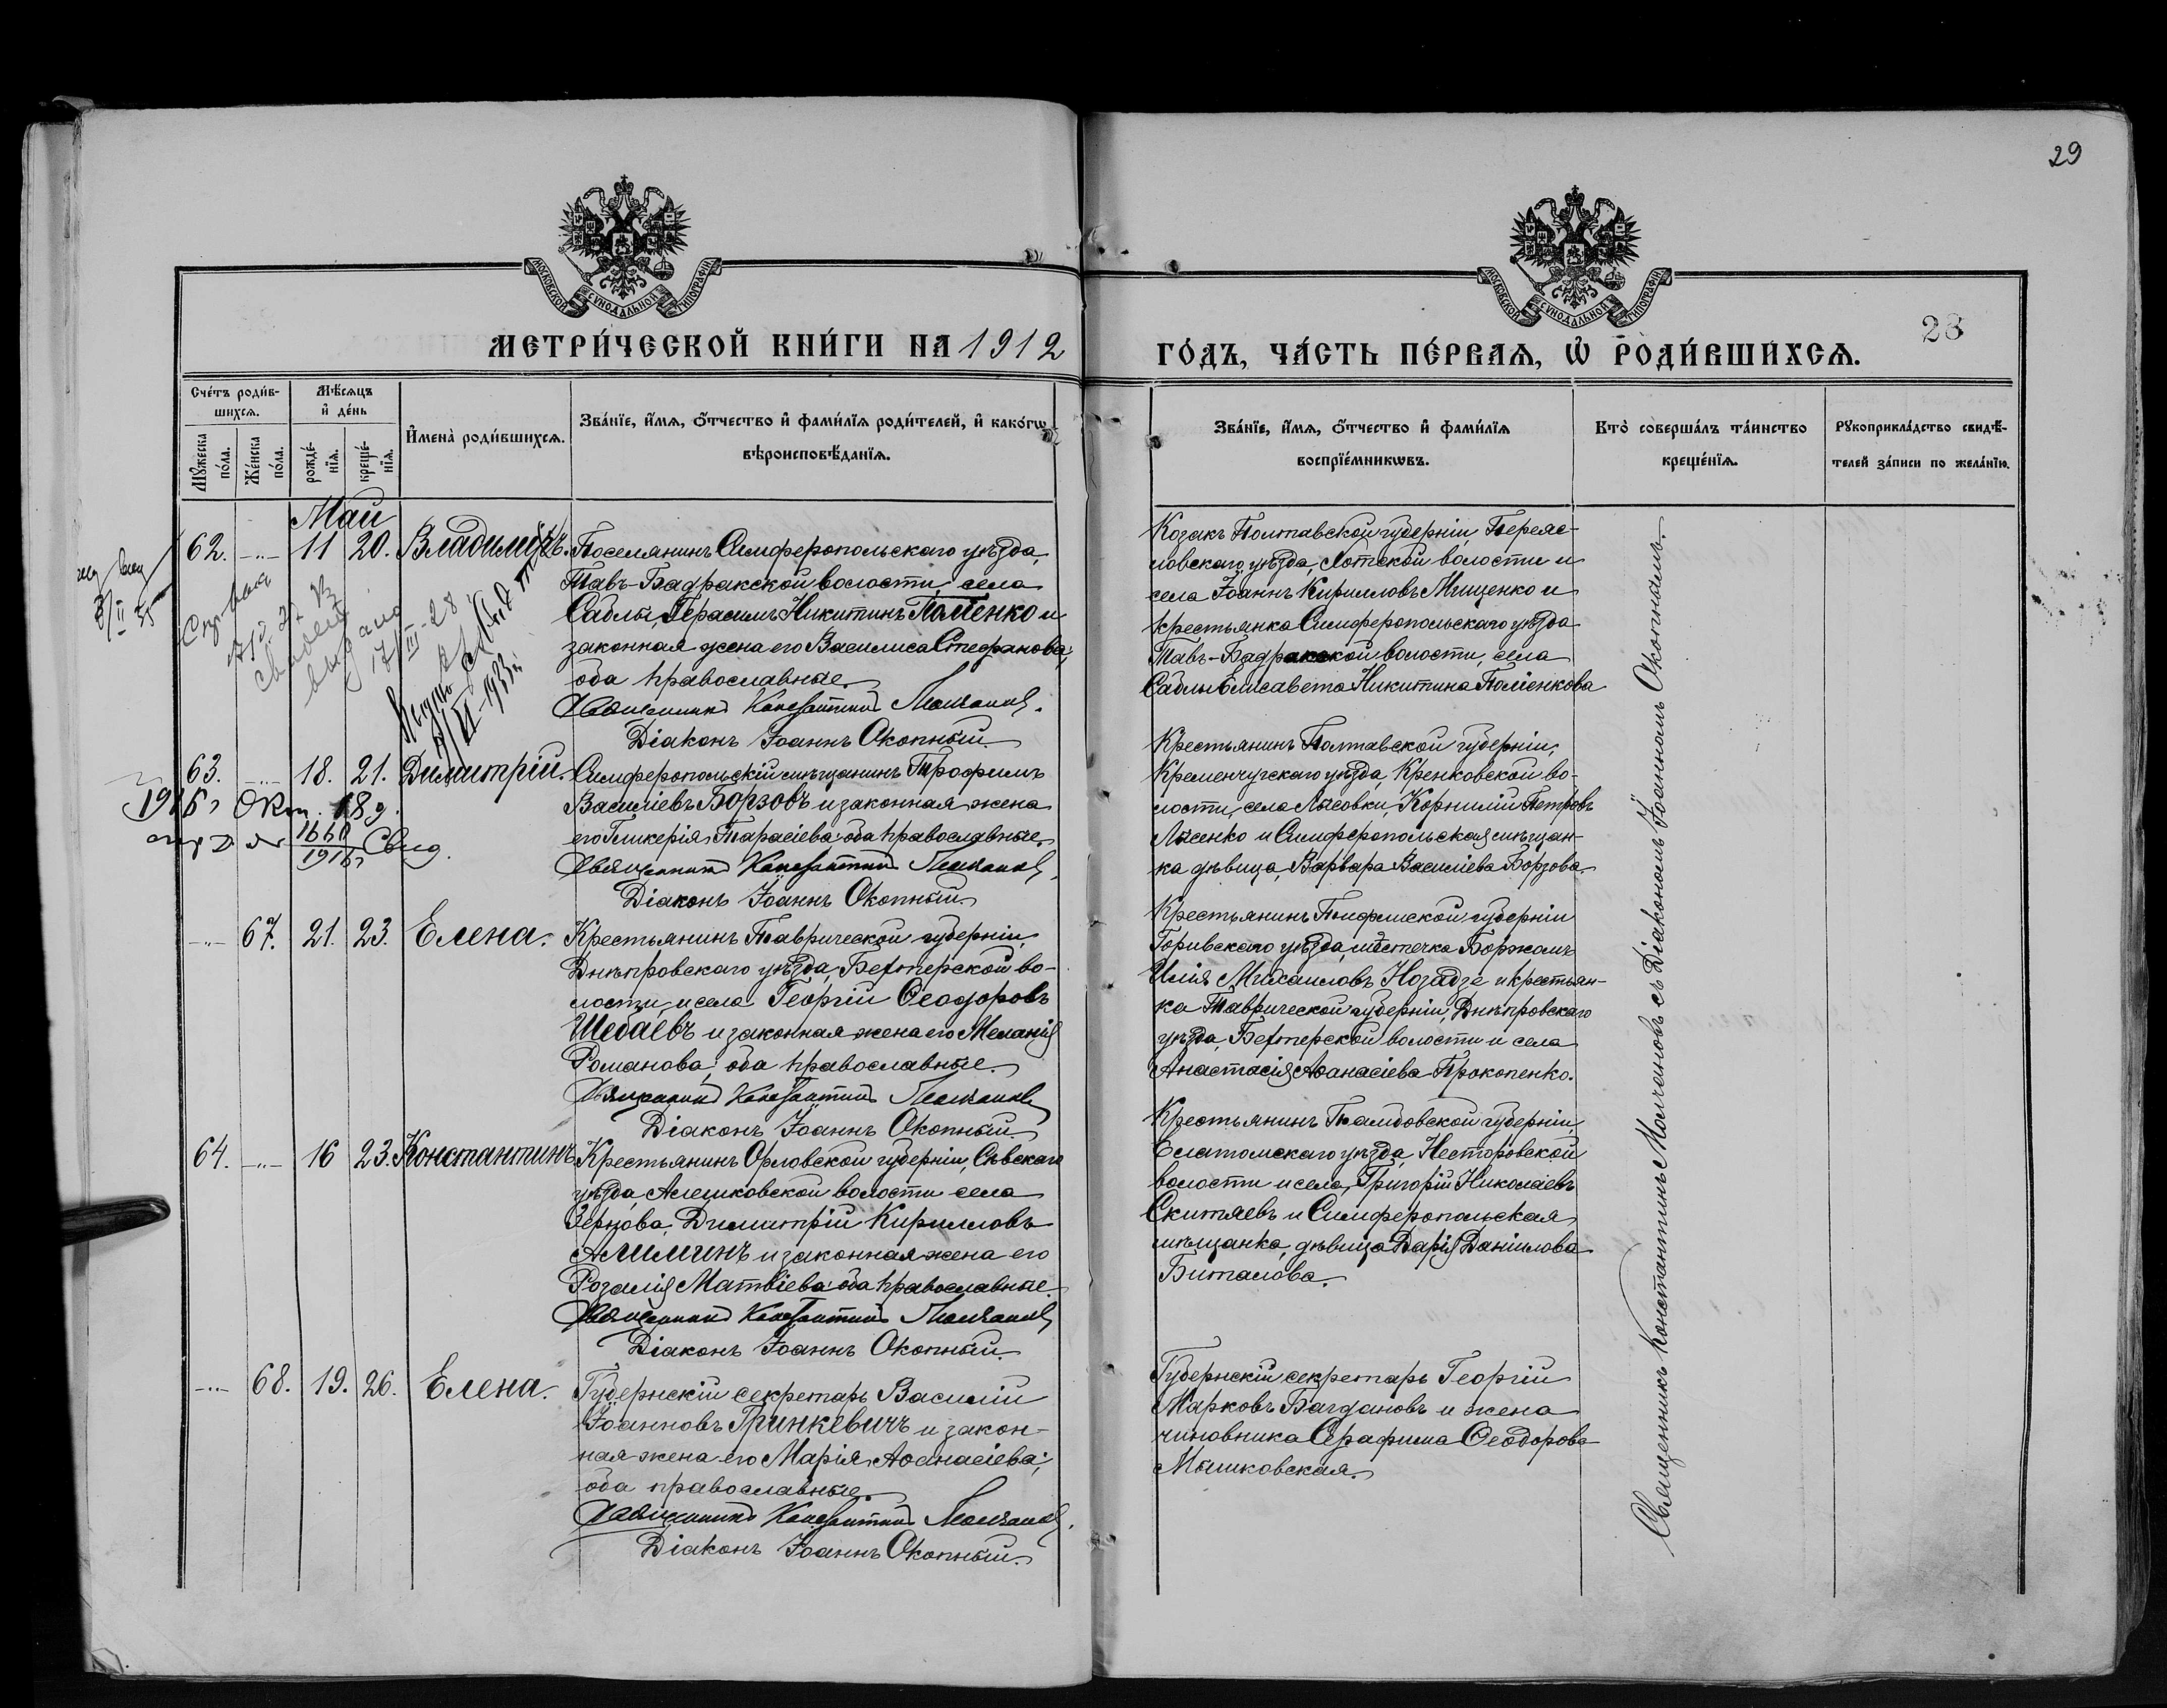 29
МОСКОВСКОЙ СѴНОДАЛЬНОЙ ТИПОГРАФІИ
МОСКОВСКОЙ СѴНОДАЛЬНОЙ ТИПОГРАФІИ
МЕТРИ́ЧЕСКОЙ КНИ́ГИ НА 1912
ГО́ДЪ, ЧА́СТЬ ПЕ́РВАЯ, Ѡ҆ РОДИ́ВШИХСЯ.
28
Сче́тъ роди́в-
шихсѧ.
Мѣ́сяцъ
и҆ де́нь
Мꙋ́жеска
по́ла.
Же́нска
по́ла.
рожде́-
нїѧ.
креще́-
нїѧ.
И҆мена̀ роди́вшихсѧ.
Зва́нїе, и҆́мѧ, ѻ҆́тчество и҆ фами́лїѧ роди́телей, и҆ како́гѡ
вѣроисповѣ́данїѧ.
Зва́нїе, и҆́мѧ, ѻ҆́тчество и҆ фами́лїѧ
воспрїе́мникѡвъ.
Кто̀ соверша́лъ та́инство
креще́нїѧ.
Рꙋкоприкла́дство свидѣ́-
телей за́писи по жела́нїю.
Май
62. -"- 11 20. Владимиръ.
Поселянинъ Симферопольскаго уѣзда,
Тавъ-Бадракской волости, села
Саблы, Герасимъ Никитинъ Поліенко и
законная жена его Василиса Стефанова;
оба православные.
Священникъ Константинъ Молчановъ.
Діаконъ Іоаннъ Окопный.
Козакъ Полтавской губерніи, Переяс-
ловскаго уѣзда, волости и
села Іоаннъ Кирилловъ Мищенко и
крестьянка Симферопольскаго уѣзда
Тавъ-Бадракской волости, села
Саблы Елисавета Никитина Поліенкова
выдано
17/III-28
63. -"- 18. 21. Димитрій.
1916 г Окт. 18 д.
1660
1916 г Свид.
Симферопольскій мѣщанинъ Трофимъ
Василіевъ Борзовъ и законная жена
его Гликерія Тарасіева: оба православные.
Священникъ Константинъ Молчановъ.
Діаконъ Іоаннъ Окопный.
Крестьянинъ Полтавской губерніи,
Кременчугскаго уѣзда, во-
лости, села Корнилій Петровъ
Лысенко и Симферопольская мѣщан-
ка дѣвица, Варвара Василіева Борзова.
-"- 67. 21. 23. Елена.
Крестьянинъ Таврической губерніи,
Днѣпровскаго уѣзда, Бехтерской во-
лости, и села Георгій Ѳеодоровъ
Шебаевъ и законная жена его Меланія
Романова; оба православные.
Священникъ Константинъ Молчановъ
Діаконъ Іоаннъ Окопный.
Крестьянинъ Тифлисской губерніи
Горивскаго уѣзда, мѣстечка Боржомъ
Илія Михаиловъ Нозадзе и крестьян-
ка Таврической губерніи, Днѣпровскаго
уѣзда, Бехтерской волости и села
Анастасія Аѳанасіева Прокопенко.
64. -"- 16 23. Константинъ
Крестьянинъ Орловской губерніи, Сѣвскаго
уѣзда, Алешковской волости села
Зернова, Димитрій Кирилловъ
Алимкинъ и законная жена его
Розалія Матвіева: оба православные.
Священникъ Константинъ Молчановъ
Діаконъ Іоаннъ Окопный.
Крестьянинъ Тамбовской губерніи,
Елатомскаго уѣзда, Несторовской
волости и села, Григорій Николаевъ
Скитяевъ и Симферопольская
мѣщанка, дѣвица Дарія Даніилова
Биталова.
-"- 68. 19. 26. Елена.
Губернскій секретарь Василій
Іоанновъ Гринкевичъ и закон-
ная жена его Марія Аѳанасіева;
оба православные.
Священникъ Константинъ Молчановъ.
Діаконъ Іоаннъ Окопный.
Губернскій секретарь Георгій
Марковъ Багдановъ и жена
чиновника Серафима Ѳеодорова
Мышковская.
Священникъ Константинъ Молчановъ съ Діакономъ Іоанномъ Окопнымъ.